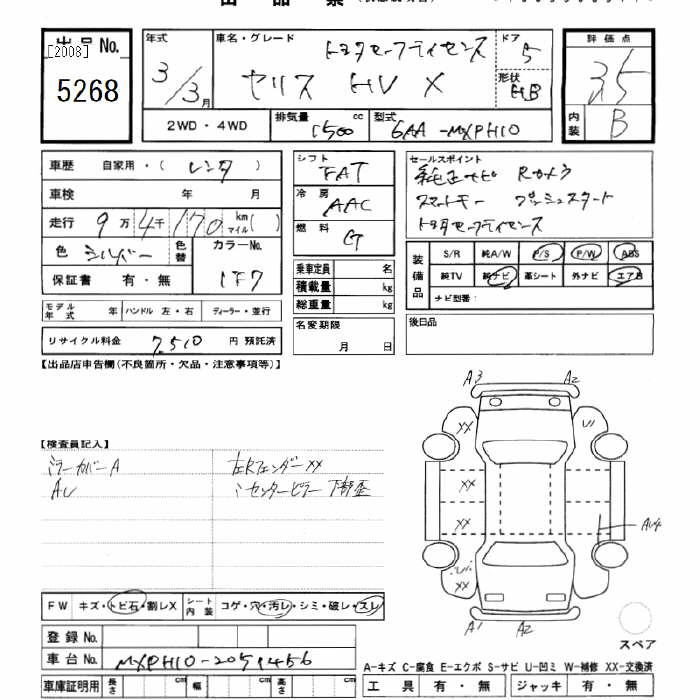 出品No.
[2008]
5268
年式
3/3月
車名・グレード
トヨタセーフティセンス
ヤリス HV X
ドア
5
形状
HB
評価点
3.5
内装
B
2WD・4WD
排気量
1500 cc
型式
6AA-MXPH10
車歴 自家用・(レンタ)
車検 年 月
走行 9万4千170 km マイル( )
色 シルバー
色替
カラーNo.
1F7
保証書 有・無
モデル年式 年 ハンドル 左・右 ディーラー・並行
リサイクル料金 7,510 円 預託済
シフト
FAT
冷房
AAC
燃料
G
乗車定員 名
積載量 kg
総重量 kg
名変期限
月 日
セールスポイント
純正ナビ Rカメラ
スマートキー プッシュスタート
トヨタセーフティセンス
装備品
S/R 純A/W P/S P/W ABS
純TV 純ナビ 革シート 外ナビ エアB
ナビ型番:
後日品
【出品店申告欄(不良箇所・欠品・注意事項等)】
【検査員記入】
ミラーカバーA
AU
左Rフェンダー XX
〃センターピラー下部歪
A3 A2
XX
XX
XX
XX
AU4
A1 A2
FW キズ・トビ石・割レX
シート内装 コゲ・穴・汚レ・シミ・破レ・スレ
登録No.
車台No. MXPH10-2051456
車庫証明用 長さ cm 幅 cm 高さ cm
スペア
A-キズ C-腐食 E-エクボ S-サビ U-凹ミ W-補修 XX-交換済
工具 有・無 ジャッキ 有・無